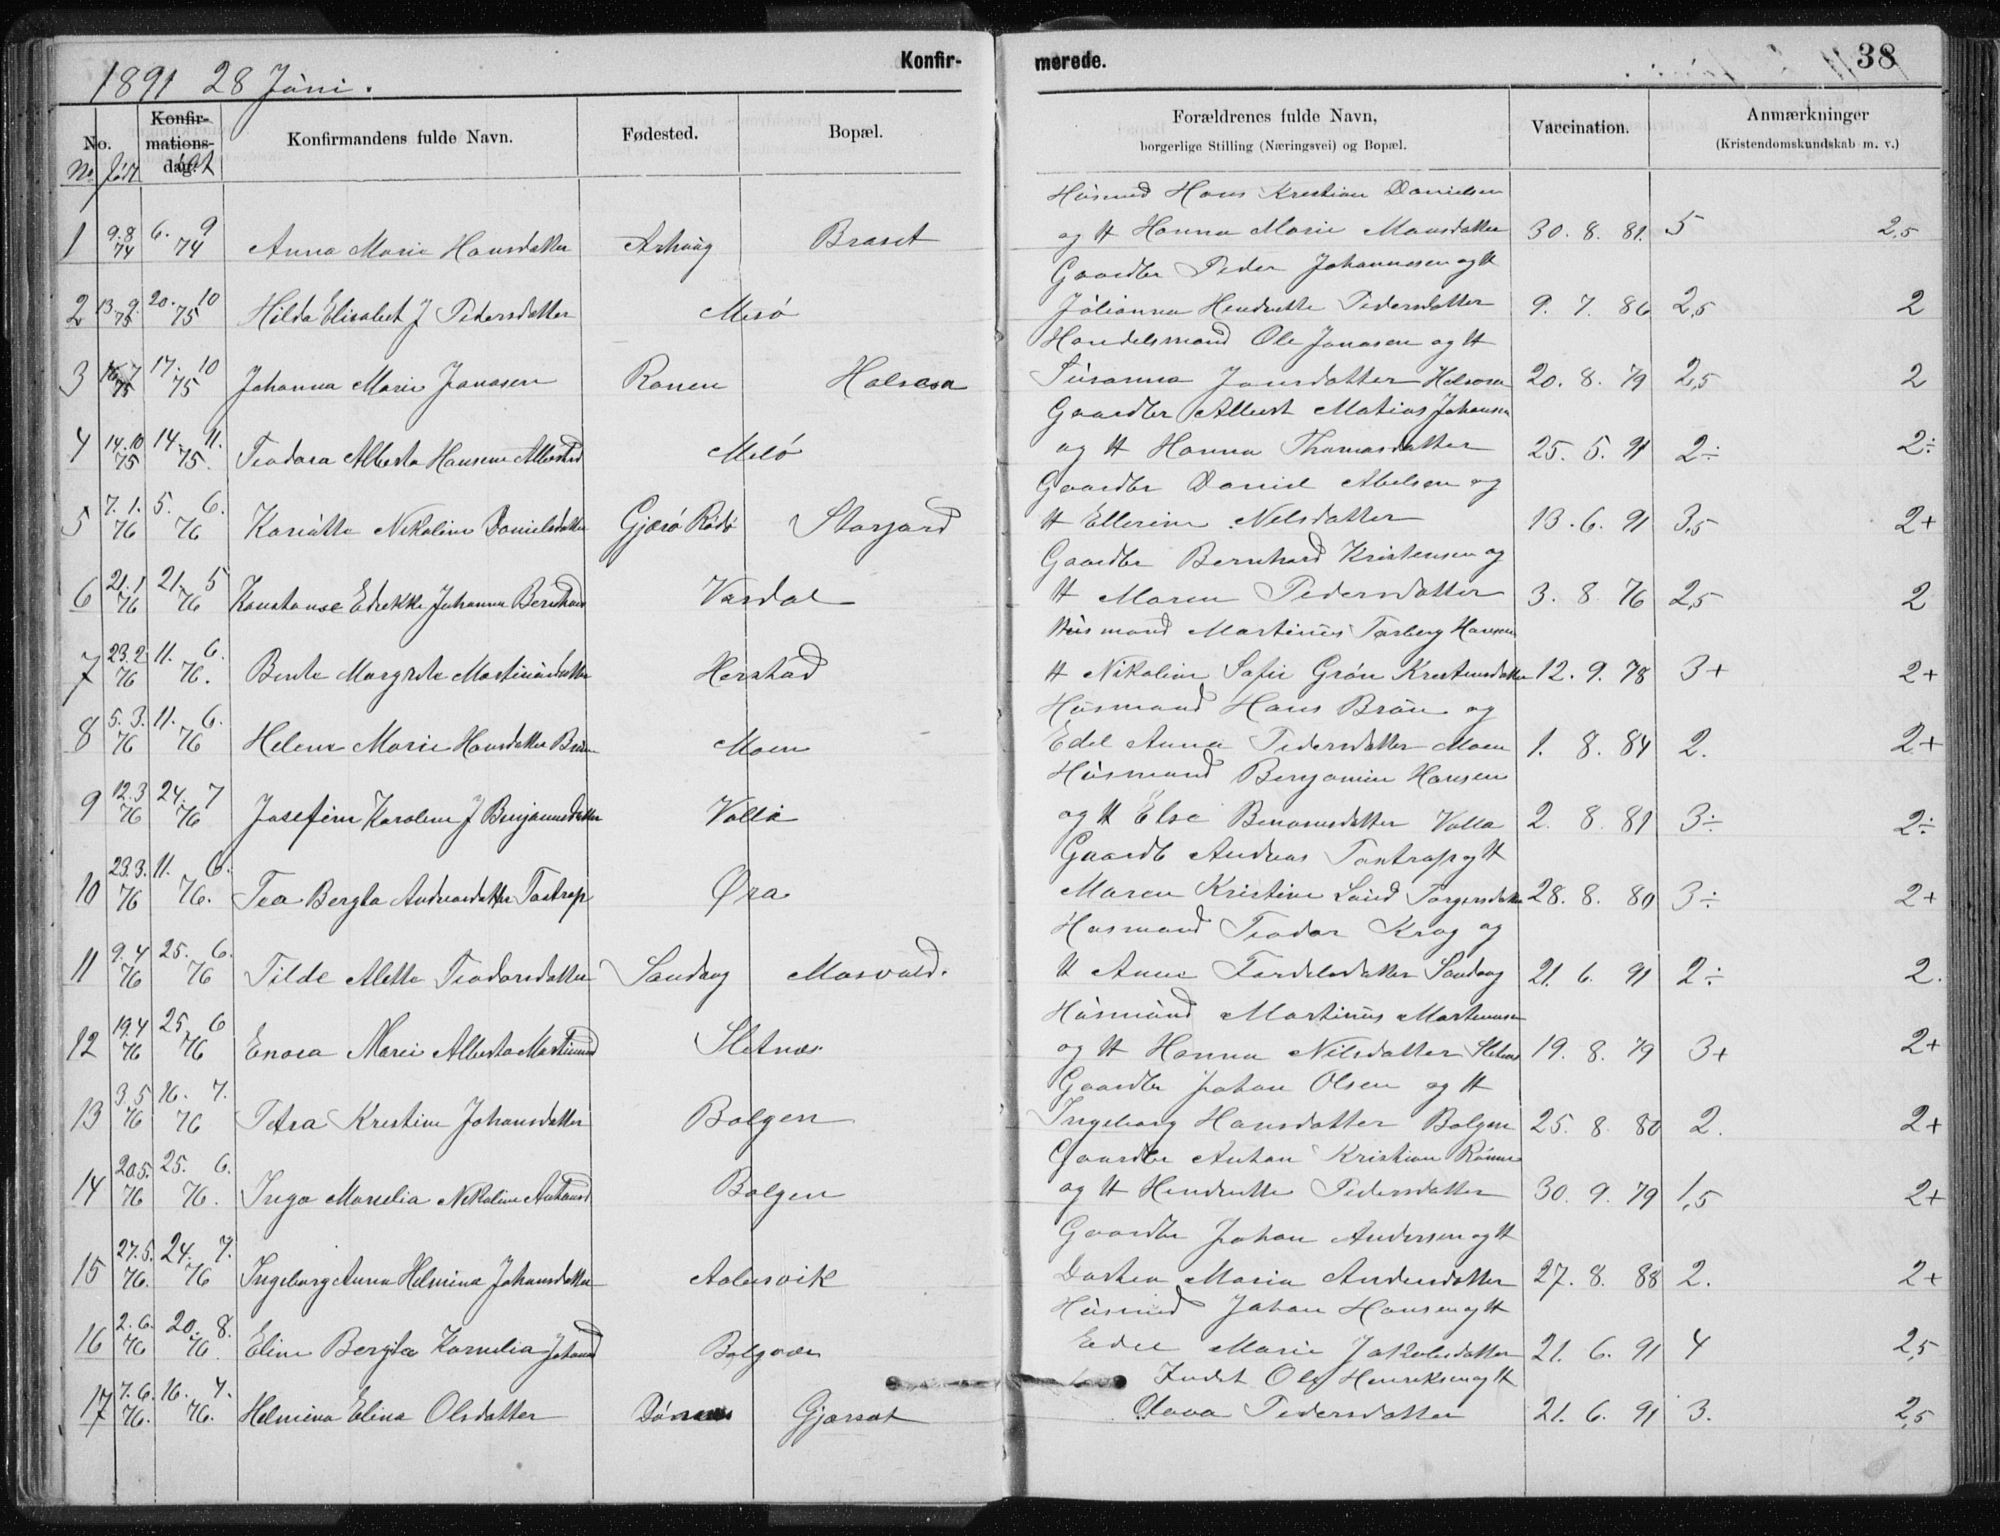 Konfir-
merede.
38
1891 28 Júni.
No.
Konfir-
mations-
dag.
No
født
døbt
Konfirmandens fulde Navn.
Fødested.
Bopæl.
Forældrenes fulde Navn,
borgerlige Stilling (Næringsvei) og Bopæl.
Vaccination.
Anmærkninger
(Kristendomskundskab m. v.)
Húsmd Hans Kristian Danielsen
1 9.8 74 6. 9 74 Anna Marie Hansdatter Braset og H Hanna Marie Mausdatter 30. 8. 81. 5 2,5
Gaardbr Peder Johannesen og H
2 13.9. 75 20. 10 75 Hilda Elisabet J Pedersdatter Mesø Júlianna Hendrette Pedersdatter 9. 7. 86 2,5 2
Handelsmand Ole Jonasen og H
3 16.7 75 17. 10 75 Johanna Marie Jonasen Ranen Halsosa Súsanna Jonsdatter Halsosa 20. 8. 79 2,5 2
Gaardbr Albert Matias Johansen
4 14.10 75 14. 11. 75. Teodora Alberta Hansine Albertsd Melø og H Hanna Thomasdatter 25. 5. 91 2÷ 2÷
Gaardbr Daniel Abelsen og
5 7.1. 76 5. 6. 76 Nikoline Danielsdatter Gjærø Rødø Storjord H Ellerine Nelsdatter 13. 6. 91 3,5 2+
Gaardbr Bernhard Kristensen og
6 21.1 76 21. 5 76 Konstanse Edrekke Johanna Vasdal H Maren Pedersdatter 3. 8. 76 2,5 2
Húsmand Martinús Torberg Hansen
7 23.2 76 11. 6. 76. Bente Margrete Martinúsdatter Herstad H Nikoline Sofie Grøn Krestensdatter 12. 9. 78 3+ 2+
Húsmand Hans Brún og
8 5.3. 76 11. 6. 76 Helene Marie Hansdatter Brún Moen Edel Anna Pedersdatter Moen 1. 8. 84 2. 2+
Húsmand Benjamin Hansen
9 12.3 76 24. 7 76 Josefine Karoline J Benjaminsdatter Valla og H Else Benonisdatter Valla 2. 8. 81 3÷ 2÷
Gaardb Andreas Tostrap og H
10 23.3. 76 11. 6. 76. Tea Bergta Andreasdatter Tostrap Øra Maren Kristine Lúnd Torgersdatter 28. 8. 80 3÷ 2+
Húsmand Teodor Krog og
11 9.4 76 25. 6. 76 Tilde Aletta Teodorsdatter Sandvog Masvald. H Anne Fordelsdatter Sandvog 21. 6. 91 2÷ 2.
Húsmand Martinús Martinusen
12 19.4 76 25. 6 76 Marie Alberta Martinusd Sletnæs og H Hanna Nilsdatter Sletnæs 19. 8. 79 3+ 2+
Gaardbr Johan Olsen og H
13 3.5 76 16. 7. 76 Petra Kristine Johansdatter Bolgen Ingeborg Hansdatter Bolgen 25. 8. 80 2. 2+
Gaardbr Anton Kristian Rønne
14 20.5. 76 25. 6. 76. Inga Marselia Nikoline Antonsd Bolgen og H Hendrette Pedersdatter 30. 9. 79 1,5 2+
Gaardbr Johan Andersen og H
15 27.5. 76. 24. 7. 76 Ingeborg Anna Helmina Johansdatter Aalesvik Dortea Maria Andersdatter 27. 8. 88 2. 2+
Húsmd Johan Hansen og H
16 2.6. 76 20. 8. 76 Eline Bergta Kornelia Johansd Bolgvær Edel Marie Jakobsdatter 21. 6. 91 4 2,5
Indst Ole Henriksen og H
17 7.6. 76. 16. 7. 76. Helmina Elina Olsdatter Dønnes Gjersat Olava Pedersdatter 21. 6. 91 3. 2,5